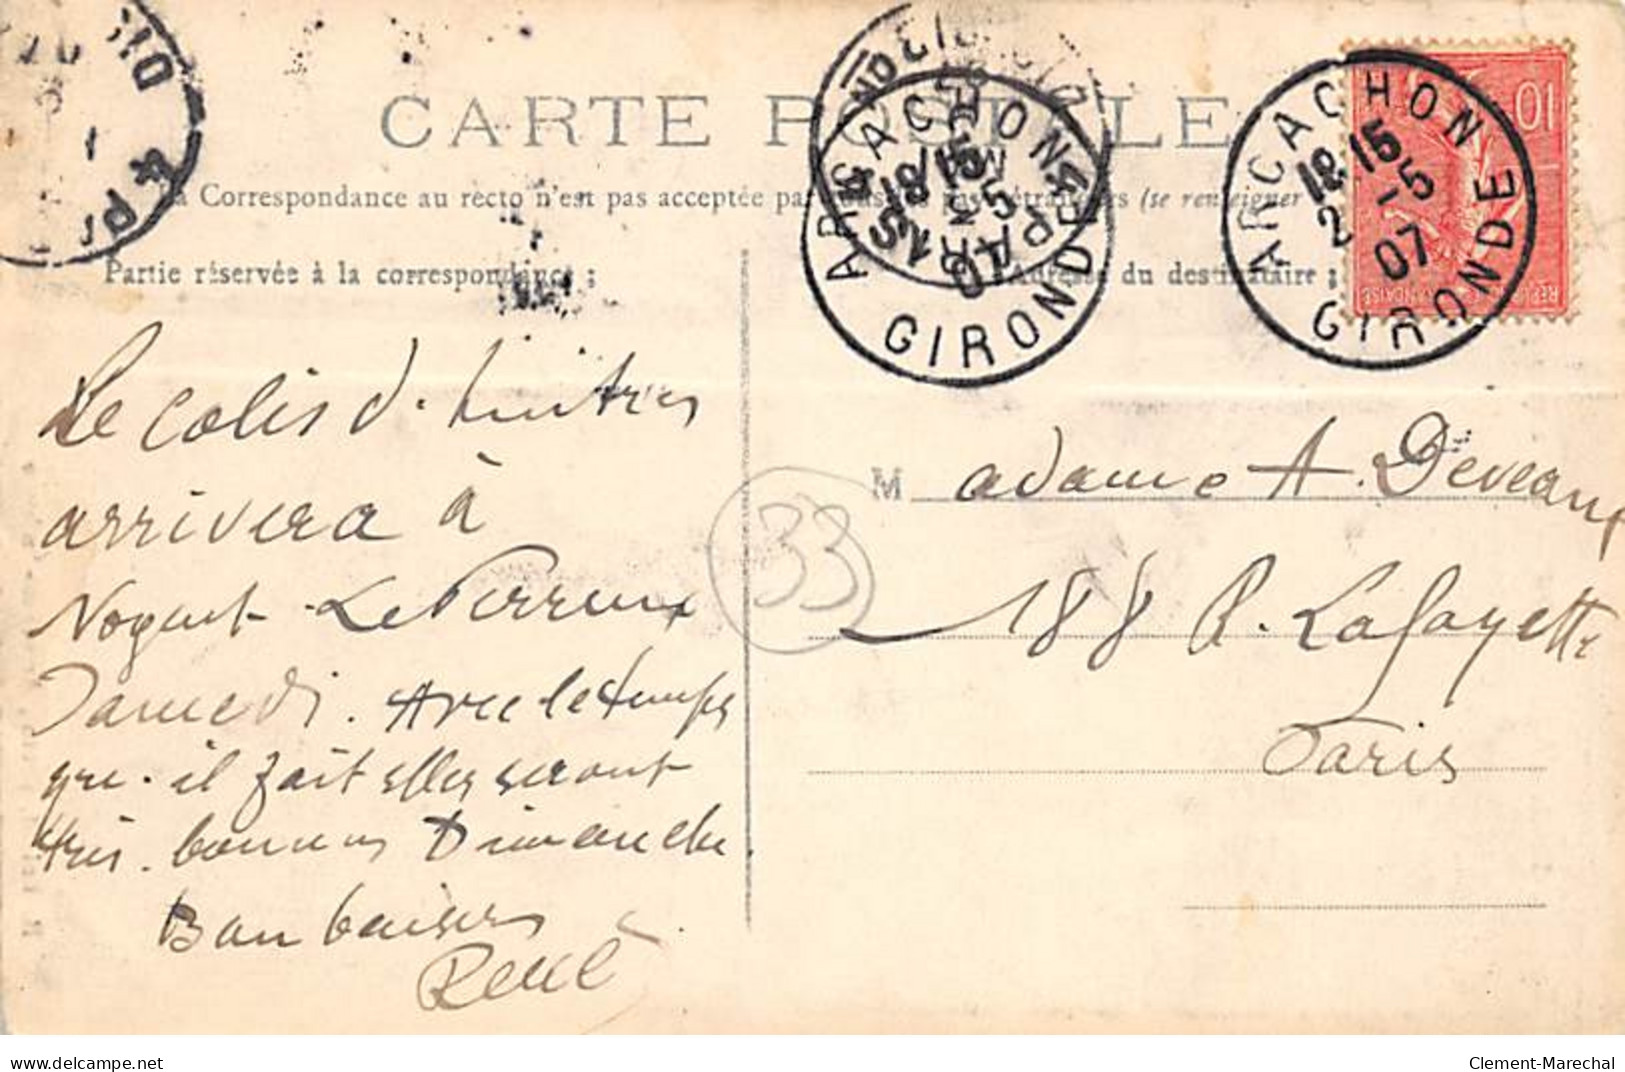 CARTE POSTALE
la Correspondance au recto n'est pas acceptée par tous les pays étrangers (se renseigner
Partie réservée à la correspondance :
Adresse du destinataire :
ARCACHON
18/15
2 -5
07
GIRONDE
ARCACHON
18 15
2 -5
07
GIRONDE
10
RÉPUBLIQUE FRANÇAISE
Le colis d'huitres
arrivera à
Nogent-Le Perreux
Samedi. Avec le temps
que il fait elles seront
très bonnes Dimanche.
Bon baisers
René
33
Madame A. Deveaux
188 R. Lafayette
Paris
delcampe.net
Clement-Marechal